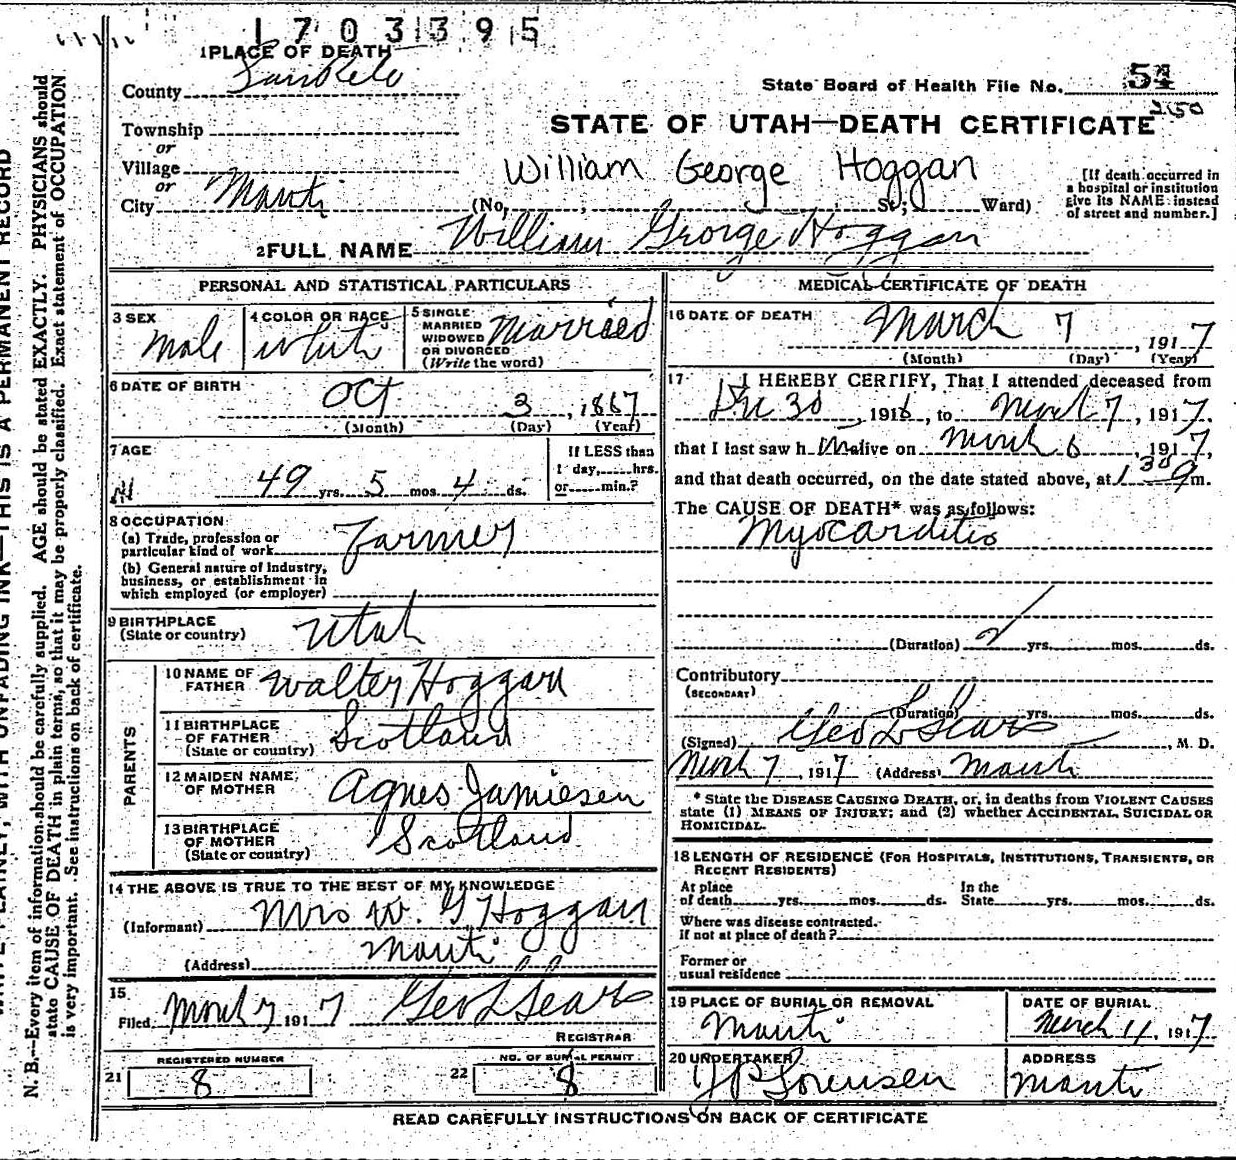 1703395
1 PLACE OF DEATH
County SanPete
State Board of Health File No. 54
250
STATE OF UTAH—DEATH CERTIFICATE
Township
or
Village
or
City Manti
William George Hoggan
(No, St; Ward)
[If death occurred in
a hospital or institution
give its NAME instead
of street and number.]
2 FULL NAME William George Hoggan
PERSONAL AND STATISTICAL PARTICULARS
3 SEX Male
4 COLOR OR RACE White
5 SINGLE
MARRIED
WIDOWED
OR DIVORCED
(Write the word) Married
6 DATE OF BIRTH
Oct 3, 1867
(Month) (Day) (Year)
7 AGE
49 yrs. 5 mos. 4 ds.
If LESS than
1 day, hrs.
or min.?
8 OCCUPATION
(a) Trade, profession or
particular kind of work Farmer
(b) General nature of Industry,
business, or establishment in
which employed (or employer)
9 BIRTHPLACE
(State or country) Utah
PARENTS
10 NAME OF
FATHER Walter Hoggan
11 BIRTHPLACE
OF FATHER
(State or country) Scotland
12 MAIDEN NAME,
OF MOTHER Agnes Jamiesen
13 BIRTHPLACE
OF MOTHER
(State or country) Scotland
14 THE ABOVE IS TRUE TO THE BEST OF MY KNOWLEDGE
(Informant) Mrs W. G Hoggan
(Address) Manti
15
Filed March 7 1917 Geo L Sears
REGISTRAR
REGISTERED NUMBER
21 8
NO. OF BURIAL PERMIT
22 8
MEDICAL CERTIFICATE OF DEATH
16 DATE OF DEATH
March 7, 1917
(Month) (Day) (Year)
17 I HEREBY CERTIFY, That I attended deceased from
Dec 30, 1916, to March 7, 1917.
that I last saw h im alive on March 6, 1917,
and that death occurred, on the date stated above, at 1 30 a m.
The CAUSE OF DEATH* was as follows:
Myocarditis
(Duration) 2 yrs. mos. ds.
Contributory
(SECONDARY)
(Duration) yrs. mos. ds.
(Signed) Geo L Sears, M. D.
March 7, 1917 (Address) Manti
* State the DISEASE CAUSING DEATH, or, in deaths from VIOLENT CAUSES
state (1) MEANS OF INJURY; and (2) whether ACCIDENTAL, SUICIDAL OR
HOMICIDAL.
18 LENGTH OF RESIDENCE (FOR HOSPITALS, INSTITUTIONS, TRANSIENTS, OR
RECENT RESIDENTS)
At place
of death yrs. mos. ds.
In the
State yrs. mos. ds.
Where was disease contracted.
if not at place of death?
Former or
usual residence
19 PLACE OF BURIAL OR REMOVAL
Manti
DATE OF BURIAL
March 11, 1917
20 UNDERTAKER
J P Sorensen
ADDRESS
Manti
READ CAREFULLY INSTRUCTIONS ON BACK OF CERTIFICATE
WITH UNFADING INK—THIS IS A PERMANENT RECORD
N. B.—Every item of information should be carefully supplied. AGE should be stated EXACTLY. PHYSICIANS should
state CAUSE OF DEATH in plain terms, so that it may be properly classified. Exact statement of OCCUPATION
is very important. See instructions on back of certificate.